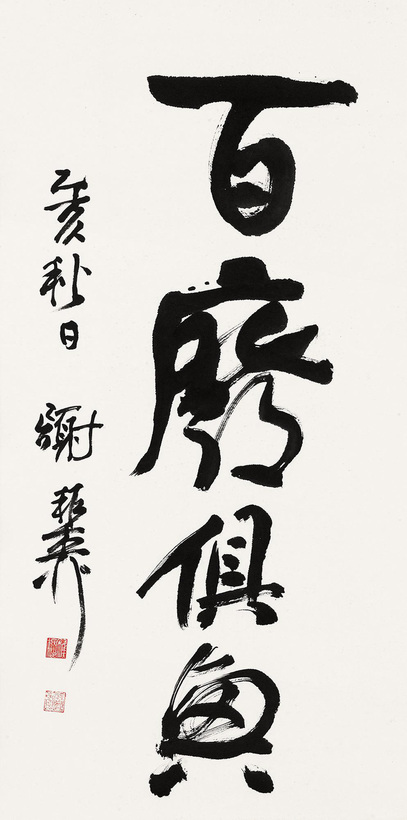 百廢俱興
乙亥秋日 謝